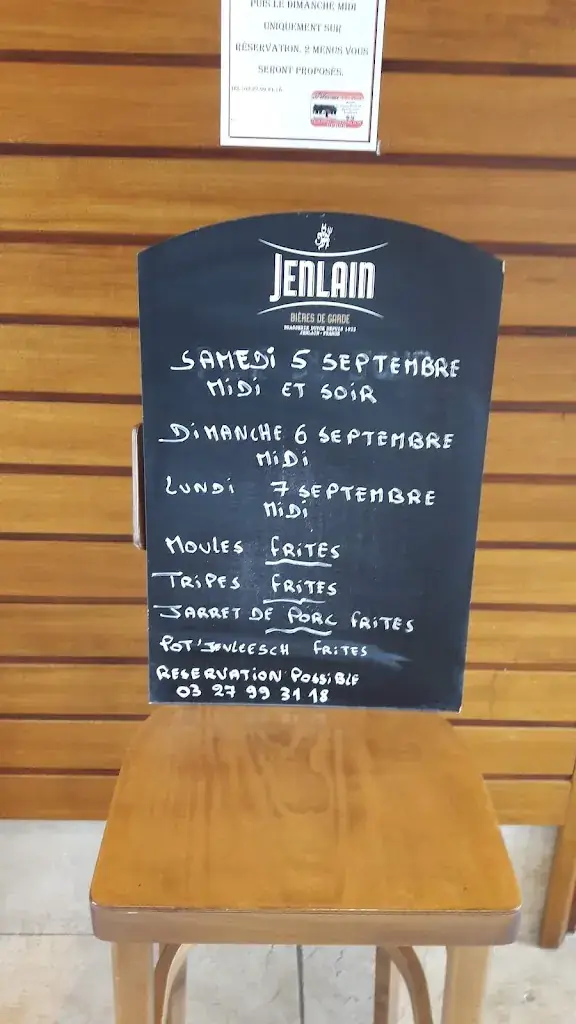 PUIS LE DIMANCHE MIDI
UNIQUEMENT SUR
RÉSERVATION. 2 MENUS VOUS
SERONT PROPOSÉS.
JENLAIN
BIÈRES DE GARDE
BRASSERIE DUYCK DEPUIS 1922
JENLAIN - FRANCE
SAMEDI 5 SEPTEMBRE
MIDI ET SOIR
DIMANCHE 6 SEPTEMBRE
MIDI
LUNDI 7 SEPTEMBRE
MIDI
MOULES FRITES
TRIPES FRITES
JARRET DE PORC FRITES
POT'JEVLEESCH FRITES
RESERVATION POSSIBLE
03 27 99 31 18